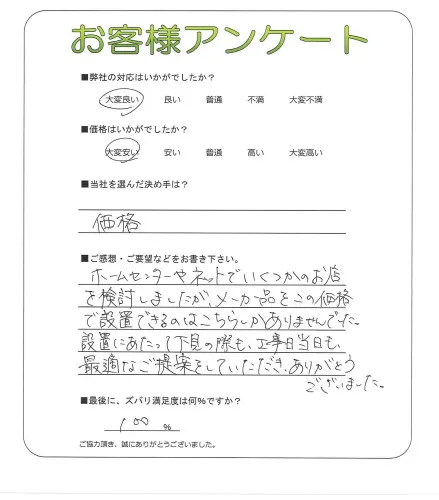 お客様アンケート
■弊社の対応はいかがでしたか?
大変良い 良い 普通 不満 大変不満
■価格はいかがでしたか?
大変安い 安い 普通 高い 大変高い
■当社を選んだ決め手は?
価格
■ご感想・ご要望などをお書き下さい。
ホームセンターやネットでいくつかのお店
を検討しましたが、メーカー品をこの価格
で設置できるのはこちらしかありませんでした。
設置にあたって下見の際も、工事日当日も、
最適なご提案をしていただき、ありがとう
ございました。
■最後に、ズバリ満足度は何%ですか?
100 %
ご協力頂き、誠にありがとうございました。